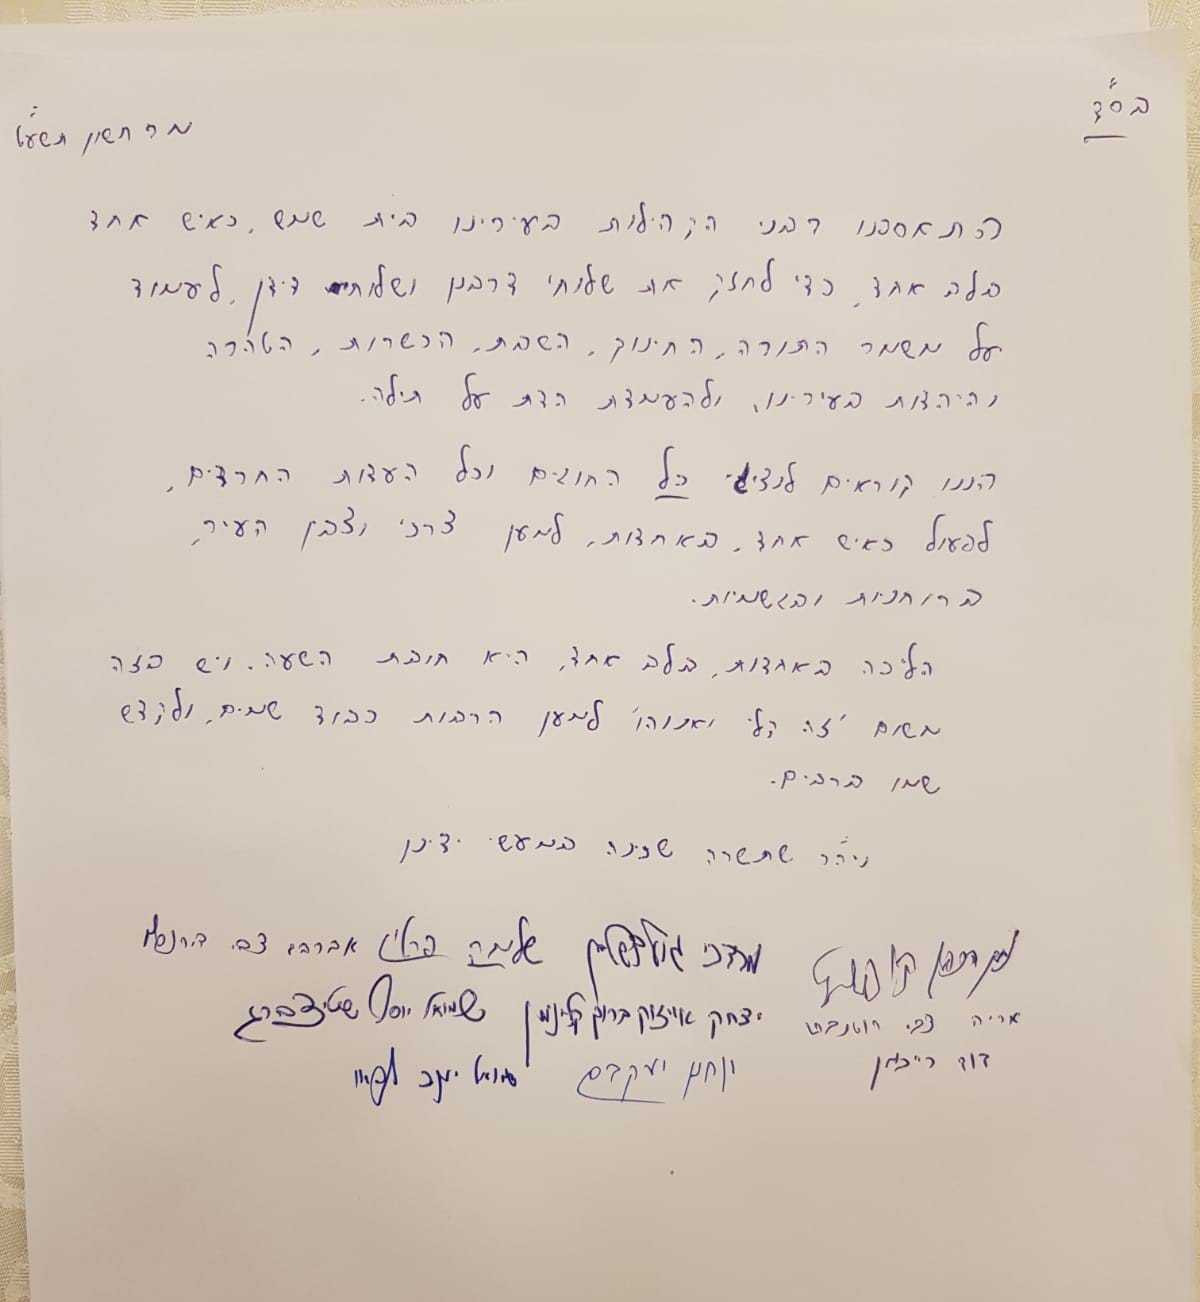 בס"ד
מר חשון תשע"ט
התאספנו רבני הקהילות בעירינו בית שמש, כאיש אחד
בלב אחד, כדי לחזק את שלוחי דרבנן ושלוחי דידן, לעמוד
על משמר התורה, החינוך, השבת, הכשרות, הטהרה
והיהדות בעירינו, ולהעמדת הדת על תילה.
הננו קוראים לנציגי כל החוגים וכל העדות החרדים,
לפעול כאיש אחד, באחדות, למען צרכי וצביון העיר,
ברוחניות ובגשמיות.
הליכה באחדות, בלב אחד, היא חובת השעה. ויש בזה
משום 'זה קלי ואנוהו' למען הרבות כבוד שמים, ולקדש
שמו ברבים.
ויה"ר שתשרה שכינה במעשי ידינו
נתן קופשיץ מרדכי גולדשטיין שלמה פרלין אברהם צבי
אריה צבי רוטנברג יצחק אייזיק ברוך קלינמן שמואל יוסף שטיצברג
דוד רייכמן יעקבס שמואל יעקב